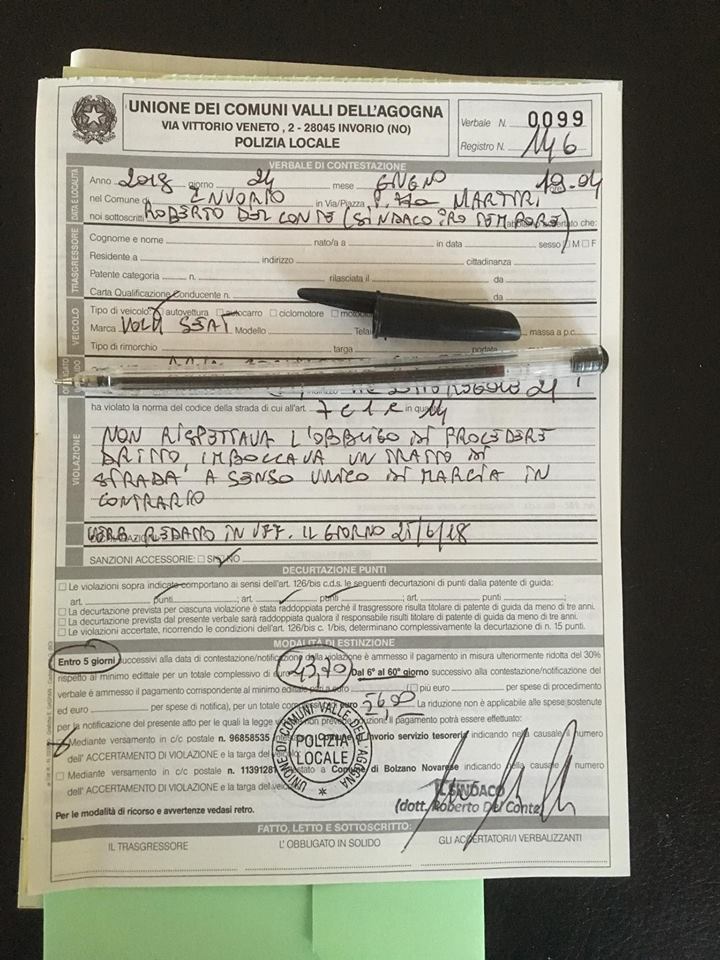 UNIONE DEI COMUNI VALLI DELL'AGOGNA
VIA VITTORIO VENETO , 2 - 28045 INVORIO (NO)
POLIZIA LOCALE
Verbale N. 0099
Registro N. 146
VERBALE DI CONTESTAZIONE
DATA E LOCALITÀ
Anno 2018 giorno 24 mese GIUGNO 19.04
nel Comune di INVORIO in Via/Piazza P.zza MARTIRI
noi sottoscritti ROBERTO DEL CONTE (SINDACO PRO TEMPORE) che:
TRASGRESSORE
Cognome e nome nato/a a in data sesso M F
Residente a indirizzo cittadinanza
Patente categoria n. rilasciata il da
Carta Qualificazione Conducente n. da
VEICOLO
Tipo di veicolo: autovettura autocarro ciclomotore
Marca SEAT Modello massa a p.c.
Tipo di rimorchio targa portata
21
ha violato la norma del codice della strada di cui all'art. 7 c 1 e 14 in
VIOLAZIONE
NON RISPETTAVA L'OBBLIGO DI PROCEDERE
DRITTO, IMBOCCAVA UN TRATTO DI
STRADA A SENSO UNICO DI MARCIA IN
CONTRARIO
IN UFF. IL GIORNO 25/6/18
SANZIONI ACCESSORIE: SI NO
DECURTAZIONE PUNTI
Le violazioni sopra indicate comportano ai sensi dell'art. 126/bis c.d.s. le seguenti decurtazioni di punti dalla patente di guida:
art. punti ; art. punti ; art. punti ;
La decurtazione prevista per ciascuna violazione è stata raddoppiata perché il trasgressore risulta titolare di patente di guida da meno di tre anni.
La decurtazione prevista dal presente verbale sarà raddoppiata qualora il responsabile risulti titolare di patente di guida da meno di tre anni.
Le violazioni accertate, ricorrendo le condizioni dell'art. 126/bis c. 1/bis, determinano complessivamente la decurtazione di n. 15 punti.
MODALITÀ DI ESTINZIONE
Entro 5 giorni successivi alla data di contestazione/notificazione della violazione è ammesso il pagamento in misura ulteriormente ridotta del 30%
rispetto al minimo edittale per un totale complessivo di euro Dal 6° al 60° giorno successivo alla contestazione/notificazione del
verbale è ammesso il pagamento corrispondente al minimo edittale pari a euro più euro per spese di procedimento
ed euro per spese di notifica), per un totale euro La riduzione non è applicabile alle spese sostenute
per la notificazione del presente atto per le quali la legge non prevede l'obbligazione il pagamento potrà essere effettuato:
Mediante versamento in c/c postale n. 96858535 Comune di Invorio servizio tesoreria indicando nella causale il numero
dell' ACCERTAMENTO DI VIOLAZIONE e la targa del
Mediante versamento in c/c postale n. a Comune di Bolzano Novarese indicando nella causale il numero
dell' ACCERTAMENTO DI VIOLAZIONE e la targa del
UNIONE DI COMUNI VALLE DELL'AGOGNA
POLIZIA
LOCALE
IL SINDACO
(dott. Roberto Del Conte)
Per le modalità di ricorso e avvertenze vedasi retro.
FATTO, LETTO E SOTTOSCRITTO:
IL TRASGRESSORE L'OBBLIGATO IN SOLIDO GLI ACCERTATORI/I VERBALIZZANTI